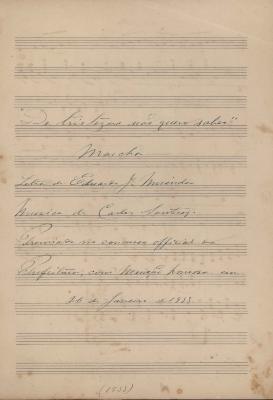 "De tristezas não quero saber"
Marcha
Letra de Eduardo J. Miranda
Musica de Carlos
Premiada no concurso official da
Prefeitura, com Menção honrosa em
26 de Janeiro de 1933
(1933)